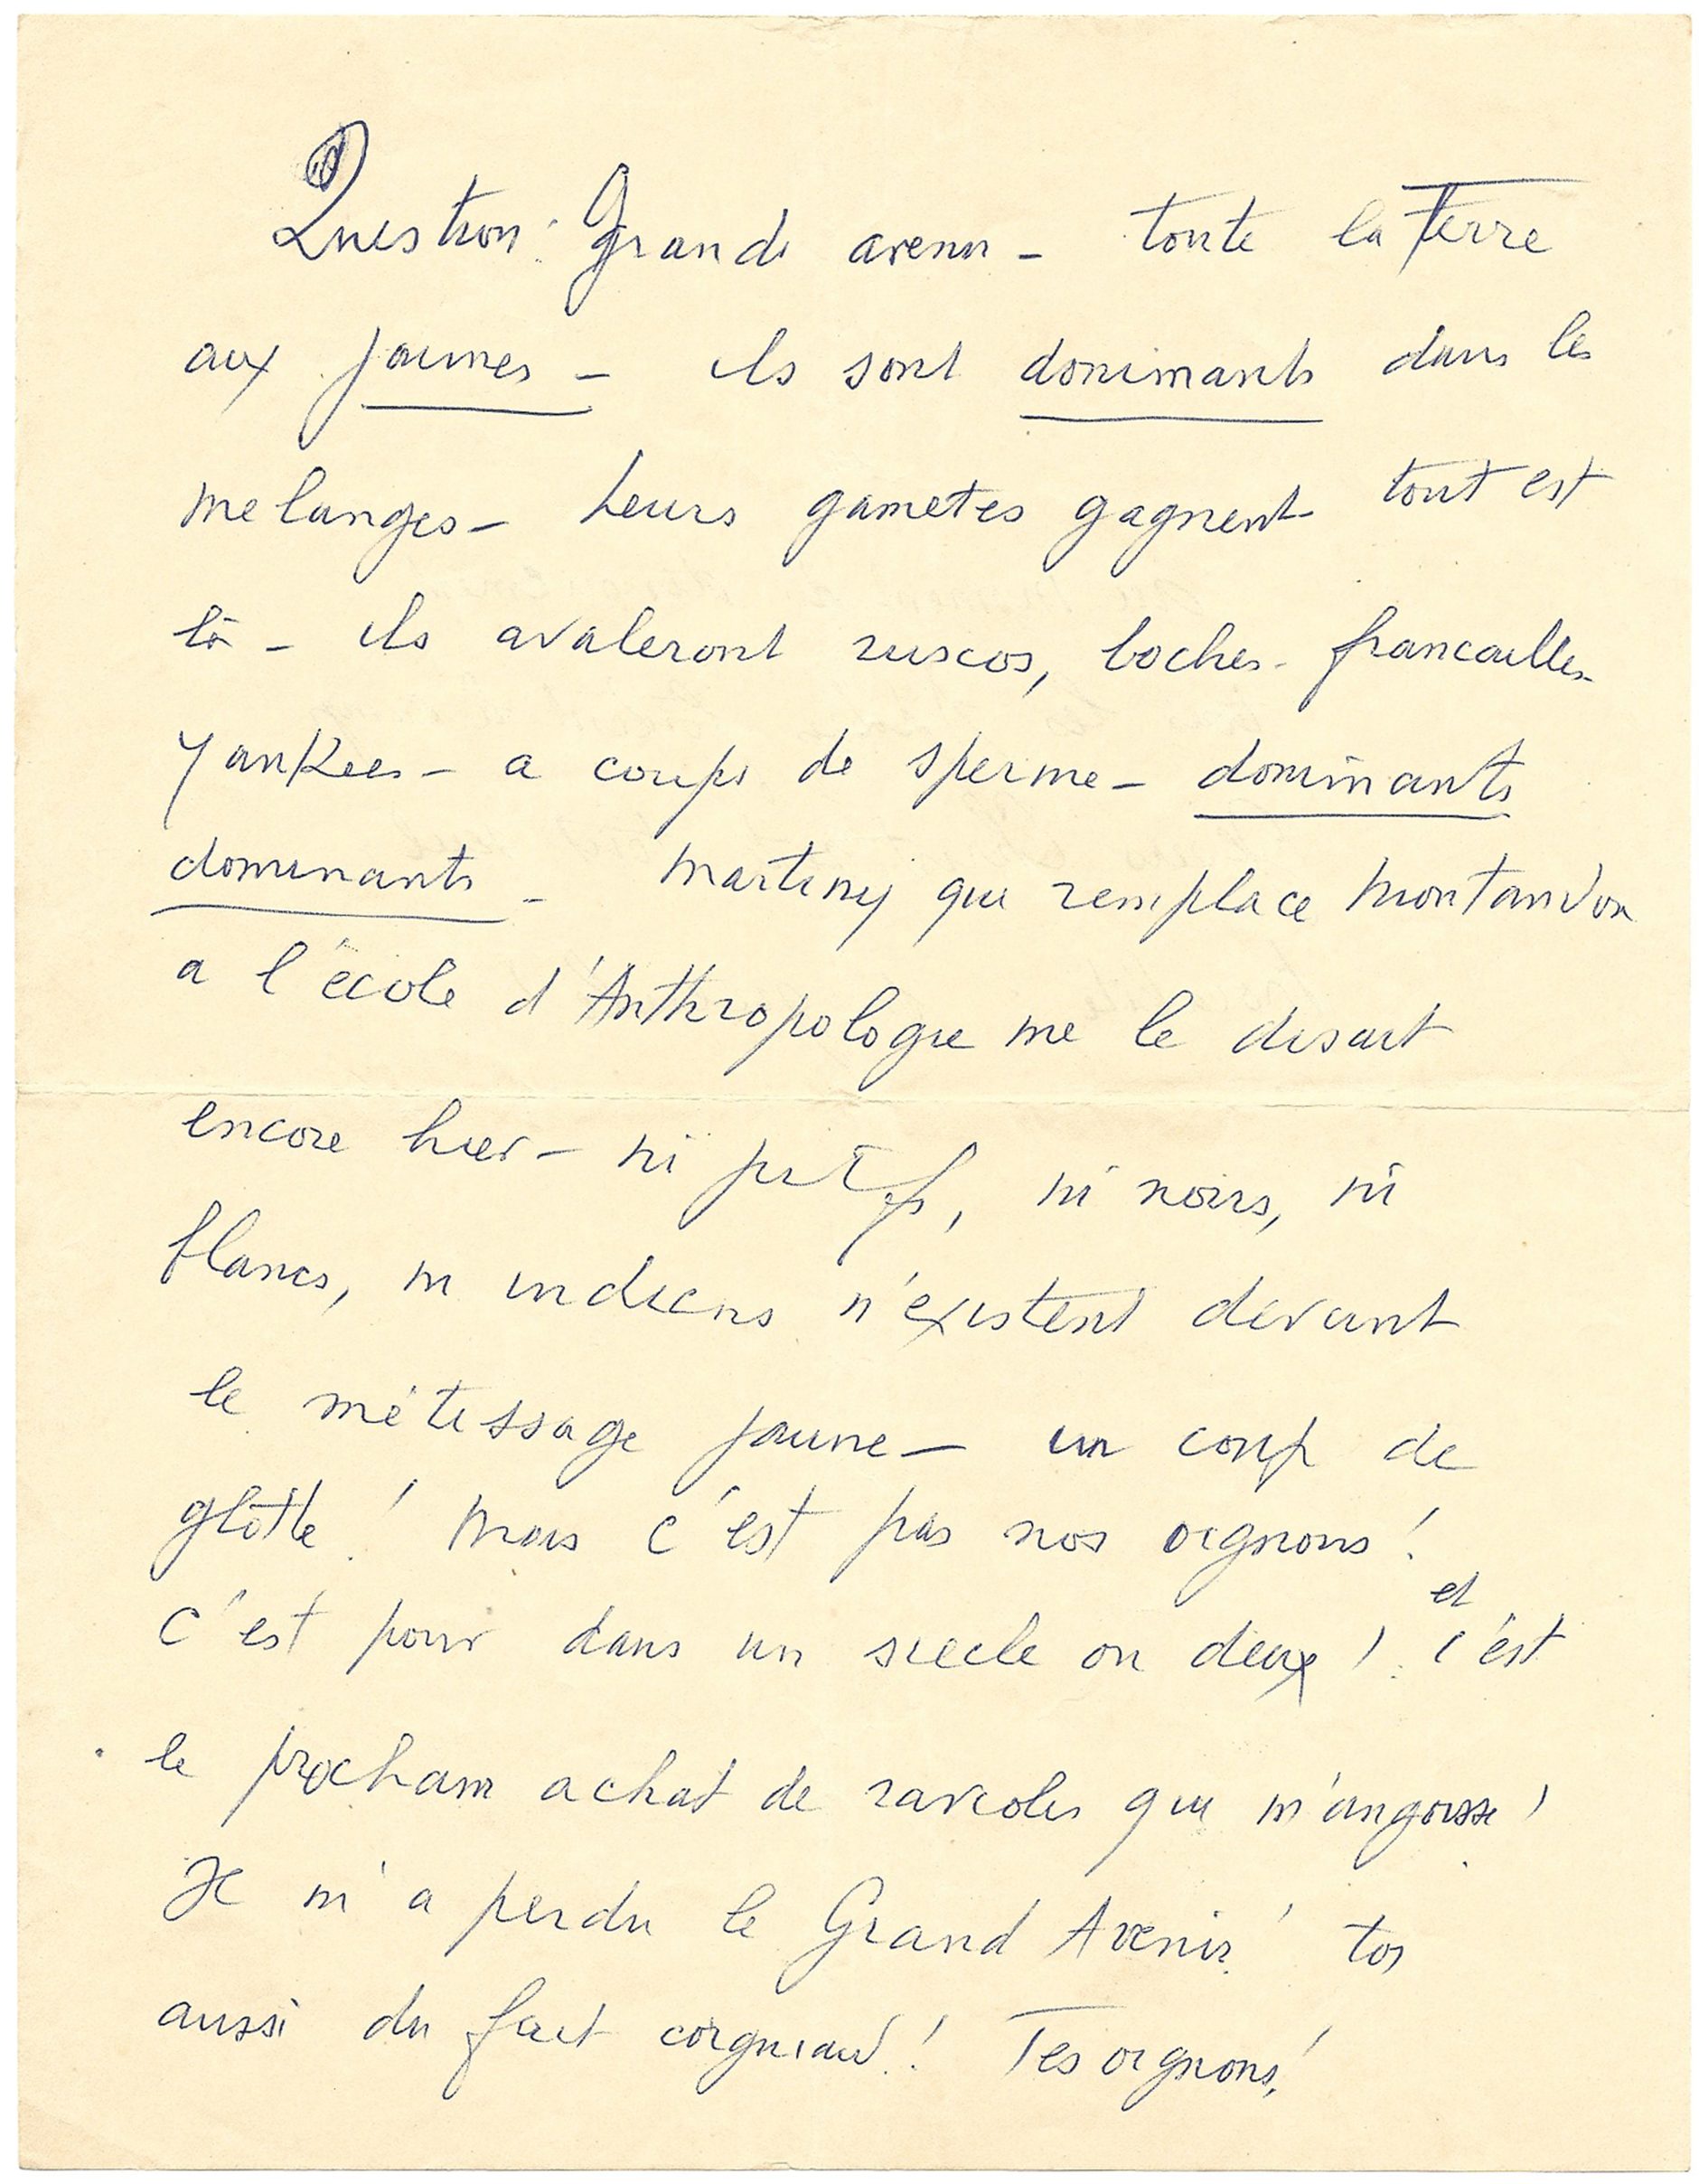 Question : Grand avenir – toute la Terre
aux jaunes – ils sont dominants dans les
melanges – Leurs gametes gagnent tout est
là – ils avaleront ruscos, boches – francailles –
Yankees – a coups de sperme – dominants
dominants – Martiny qui remplace Montandon
a l'école d'Anthropologie me le disait
encore hier – ni juifs, ni noirs, ni
blancs, ni indiens n'existent devant
le métissage jaune – un coup de
glotte ! Mais c'est pas nos oignons !
C'est pour dans un siecle ou deux ! et c'est
le prochain achat de ravioles qui m'angoisse !
Je m'a perdu le Grand Avenir ! toi
aussi du fait corgniaud ! Tes oignons !